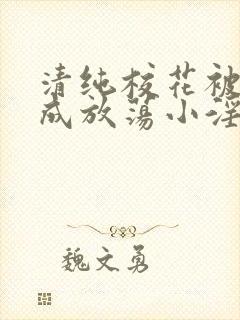 清纯校花被
成放荡小淫
魏文勇